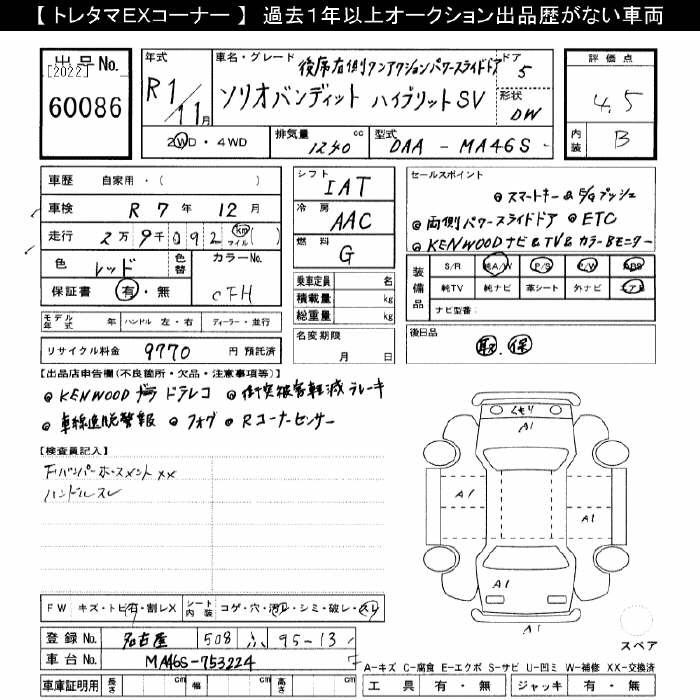 【 トレタマEXコーナー 】 過去1年以上オークション出品歴がない車両
出品No.
[2022]
60086
年式
R1/11月
車名・グレード
後席右側ワンアクションパワースライドドア
ソリオバンディット ハイブリットSV
ドア
5
形状
DW
評価点
4.5
内装
B
2WD・4WD
排気量
1240 cc
型式
DAA - MA46S
車歴 自家用・( )
車検 R 7年 12月
走行 2万9千092 km マイル ( )
色 レッド
色替
カラーNo.
CFH
保証書 有・無
モデル年式 年 ハンドル 左・右 ディーラー・並行
リサイクル料金 9770 円 預託済
シフト
IAT
冷房
AAC
燃料
G
乗車定員 名
積載量 kg
総重量 kg
名変期限
月 日
セールスポイント
◎スマートキー&E/Gプッシュ
◎両側パワースライドドア ◎ETC
◎KENWOODナビ&TV&カラーBモニター
装備品
S/R 純A/W P/S P/W ABS
純TV 純ナビ 革シート 外ナビ エアB
ナビ型番:
後日品
取.保
【出品店申告欄(不良箇所・欠品・注意事項等)】
◎KENWOOD ドラレコ ◎衝突被害軽減ブレーキ
◎車線逸脱警報 ◎フォグ ◎Rコーナーセンサー
【検査員記入】
Fバンパーホースメント××
ハンドルスレ
くもり
A1
A1
A1
A1
A1
スペア
FW キズ・トビ石・割レX
シート内装 コゲ・穴・汚レ・シミ・破レ・スレ
登録No. 名古屋 508 ふ 95-13
車台No. MA46S-753224
車庫証明用 長さ cm 幅 cm 高さ cm
A-キズ C-腐食 E-エクボ S-サビ U-凹ミ W-補修 XX-交換済
工具 有・無 ジャッキ 有・無